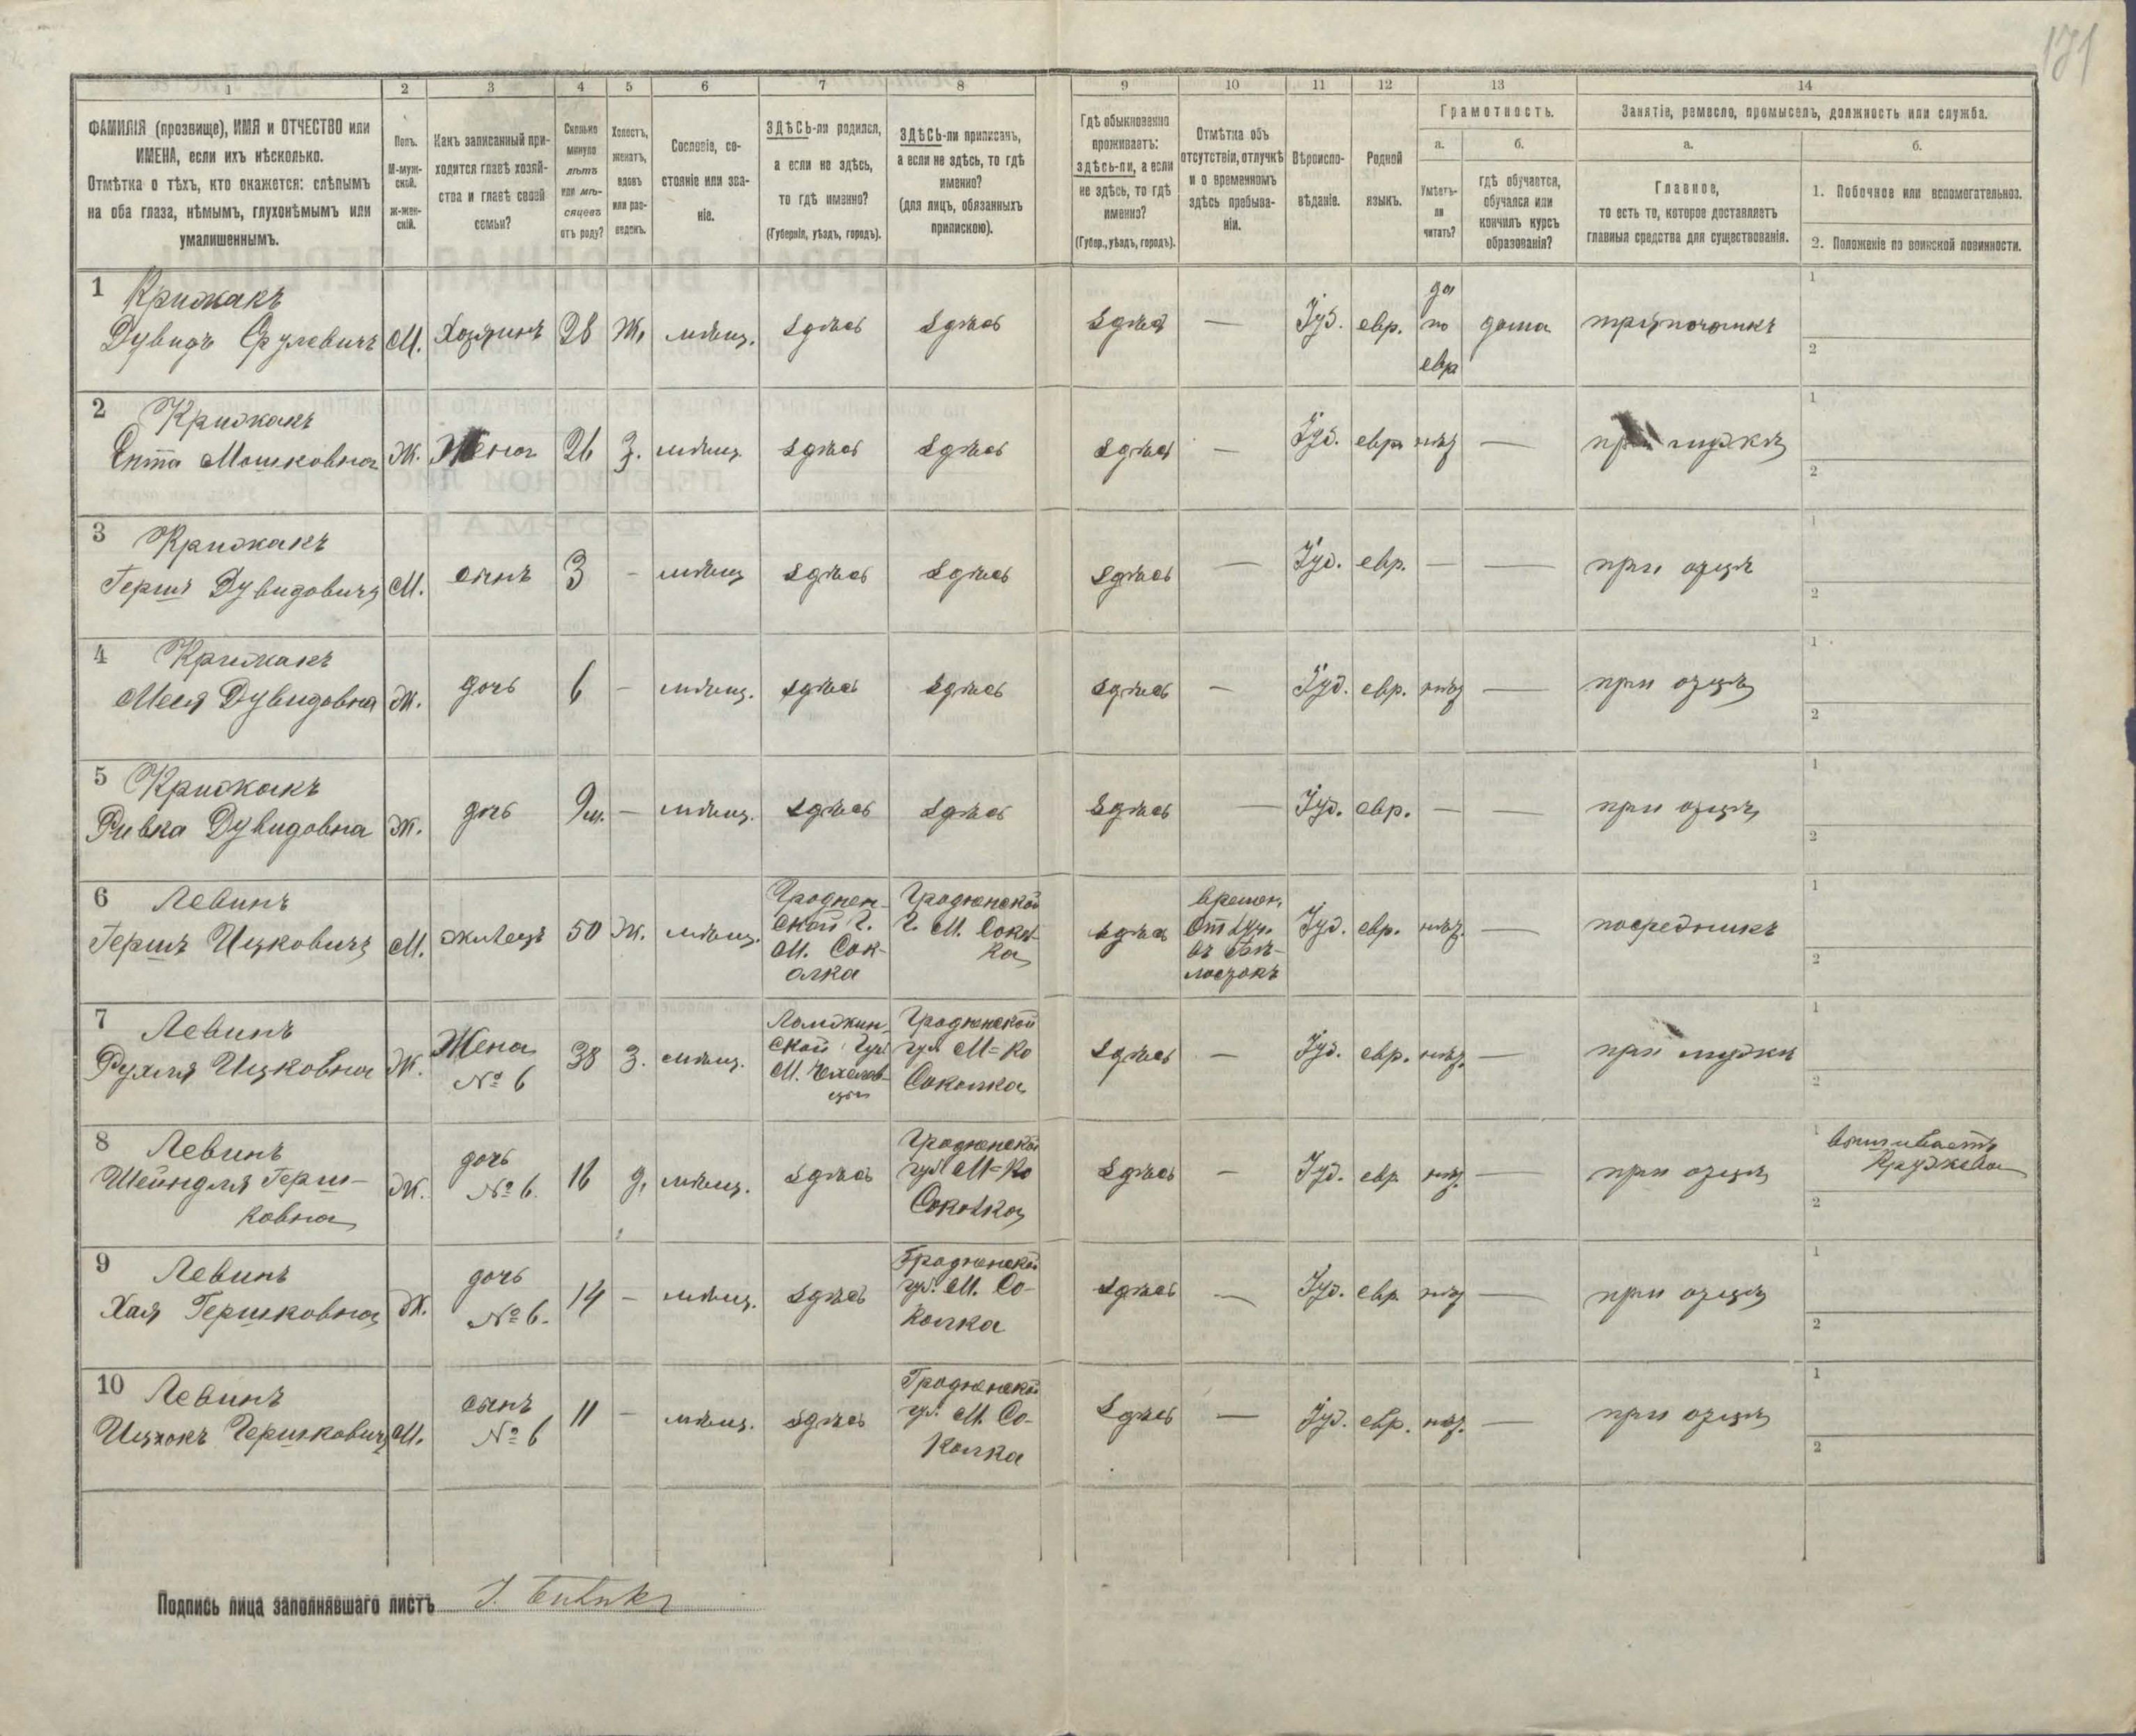 171
1
2
3
4
5
6
7
8
9
10
11
12
13
14
ФАМИЛІЯ (прозвище), ИМЯ и ОТЧЕСТВО или
ИМЕНА, если ихъ нѣсколько.
Отмѣтка о тѣхъ, кто окажется: слѣпымъ
на оба глаза, нѣмымъ, глухонѣмымъ или
умалишеннымъ.
Полъ.
М-муж-
ской.
Ж-жен-
скій.
Какъ записанный при-
ходится главѣ хозяй-
ства и главѣ своей
семьи?
Сколько
минуло
лѣтъ
или мѣ-
сяцевъ
отъ роду?
Холостъ,
женатъ,
вдовъ
или раз-
веденъ.
Сословіе, со-
стояніе или зва-
ніе.
ЗДѢСЬ-ли родился,
а если не здѣсь,
то гдѣ именно?
(Губернія, уѣздъ, городъ).
ЗДѢСЬ-ли приписанъ,
а если не здѣсь, то гдѣ
именно?
(для лицъ, обязанныхъ
припискою).
Гдѣ обыкновенно
проживаетъ:
здѣсь-ли, а если
не здѣсь, то гдѣ
именно?
(Губер., уѣздъ, городъ).
Отмѣтка объ
отсутствіи, отлучкѣ
и о временномъ
здѣсь пребыва-
ніи.
Вѣроиспо-
вѣданіе.
Родной
языкъ.
Грамотность.
а.
Умѣетъ-
ли
читать?
б.
гдѣ обучается,
обучался или
кончилъ курсъ
образованія?
Занятіе, ремесло, промыселъ, должность или служба.
а.
Главное,
то есть то, которое доставляетъ
главныя средства для существованія.
б.
1. Побочное или вспомогательное.
2. Положеніе по воинской повинности.
1 Крижакъ
Дувидъ Срулевичъ М. Хозяинъ 28 Ж. мѣщ. здѣсь здѣсь здѣсь — Іуд. евр. да по евр дома тряпочникъ 1 2
2 Крижакъ
Ента Мошковна Ж. Жена 26 З. мѣщ. здѣсь здѣсь здѣсь — Іуд. евр нѣт — при мужѣ 1 2
3 Крижакъ
Гершъ Дувидовичъ М. сынъ 3 — мѣщ здѣсь здѣсь здѣсь — Іуд. евр. — — при отцѣ 1 2
4 Крижакъ
Меся Дувидовна Ж. дочь 6 — мѣщ. здѣсь здѣсь здѣсь — Іуд. евр. нѣт — при отцѣ 1 2
5 Крижакъ
Ривка Дувидовна Ж. дочь 9м. — мѣщ. здѣсь здѣсь здѣсь — Іуд. евр. — — при отцѣ 1 2
6 Левинъ
Гершъ Ицковичъ М. жилецъ 50 Ж. мѣщ.
Гроднен-
ской г.
М. Сок-
олка
Гродненской
г. М. Сокол
ка
здѣсь
времен.
отлуч.
въ Бѣ-
лостокъ
Іуд. евр. нѣт. — посредникъ 1 2
7 Левинъ
Рухля Ицковна Ж.
Жена
№ 6
38 З. мѣщ.
Ломжин-
ской губ
М.
Гродненской
губ М=ко
Соколка
здѣсь — Іуд. евр. нѣт. — при мужѣ 1 2
8 Левинъ
Шейндля Герш-
ковна
Ж.
дочь
№ 6.
16 д. мѣщ. здѣсь
Гродненской
губ М=ко
Соколка
здѣсь — Іуд. евр нѣт. — при отцѣ
1 вышиваетъ
кружева
2
9 Левинъ
Хая Гершковна Ж.
дочь
№ 6.
14 — мѣщ. здѣсь
Гродненской
губ. М. Со-
колка
здѣсь — Іуд. евр нѣт — при отцѣ 1 2
10 Левинъ
Ицхокъ Гершковичъ М.
сынъ
№ 6
11 — мѣщ. здѣсь
Гродненской
губ. М. Со-
колка
здѣсь — Іуд. евр. нѣт. — при отцѣ 1 2
Подпись лица заполнявшаго листъ